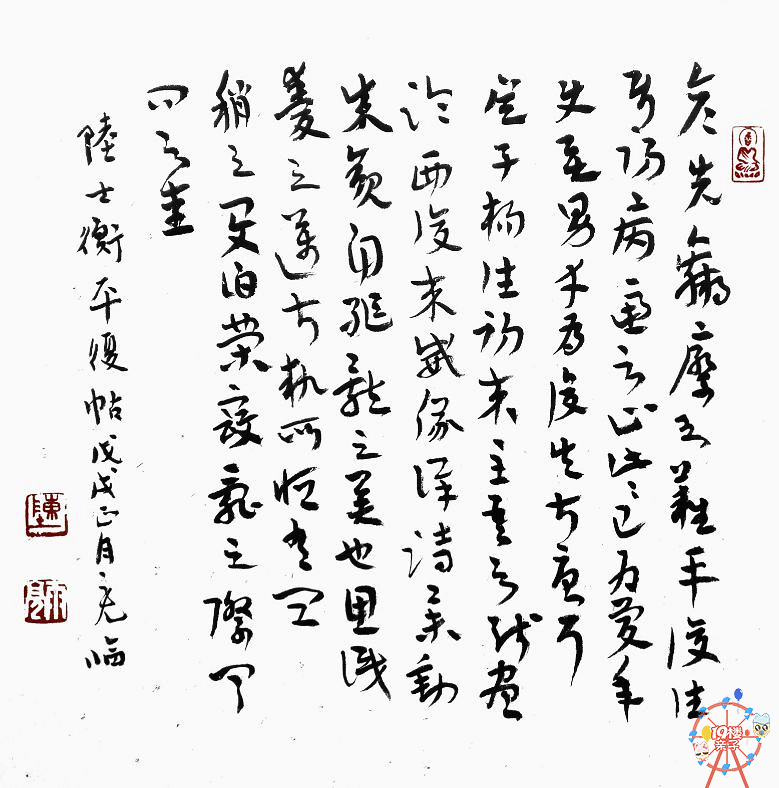 彦先羸瘵恐難平復往
屬初病慮不止此此已為慶承
使唯男幸為復失前憂耳
吳子楊往初來主吾不能盡
臨西復來威儀詳跱舉動
成觀自軀體之美也思識
量之邁前執所恒有宜
稱之夏伯榮寇亂之際聞
問不悉
陸士衡平復帖戊戌正月亮臨
陳
19楼
亲子